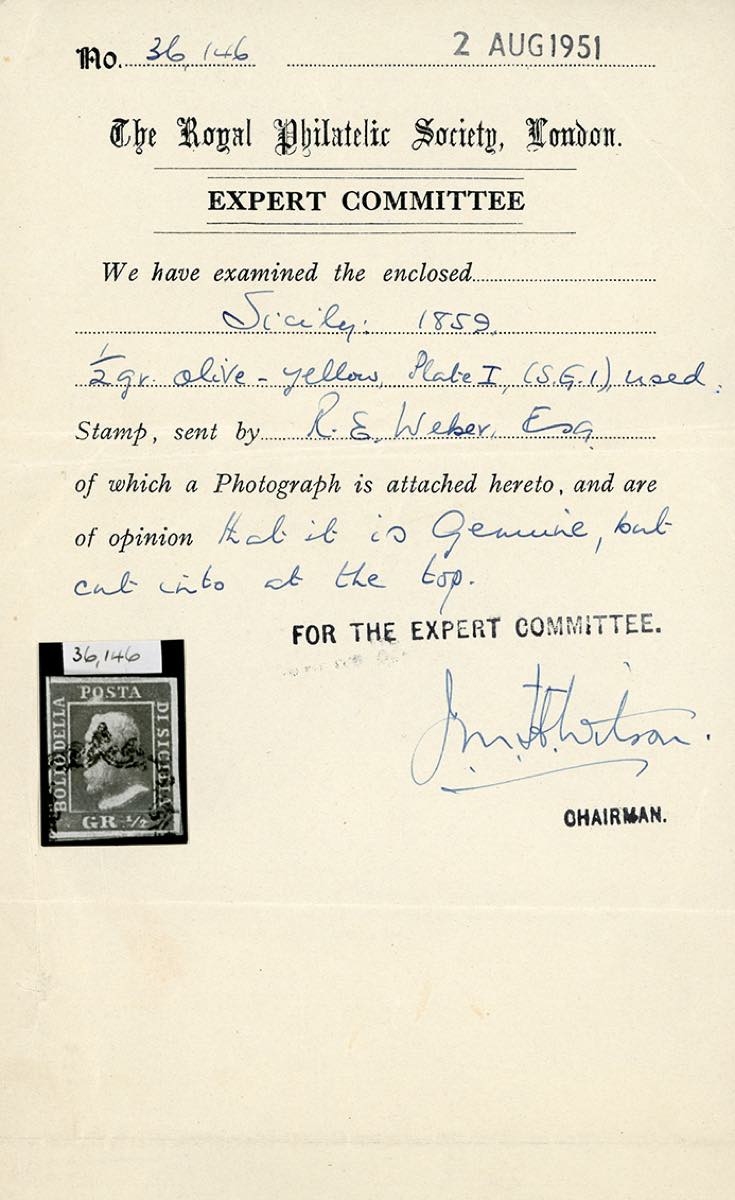 No. 36,146 2 AUG 1951
The Royal Philatelic Society, London.
EXPERT COMMITTEE
We have examined the enclosed
Sicily: 1859.
½ gr. olive-yellow, Plate I, (S.G.1), used.
Stamp, sent by R. E. Weber, Esq
of which a Photograph is attached hereto, and are
of opinion that it is Genuine, but
cut into at the top.
FOR THE EXPERT COMMITTEE.
36,146
POSTA
BOLLO DELLA
DI SICILIA
GR ½
Wilson.
CHAIRMAN.